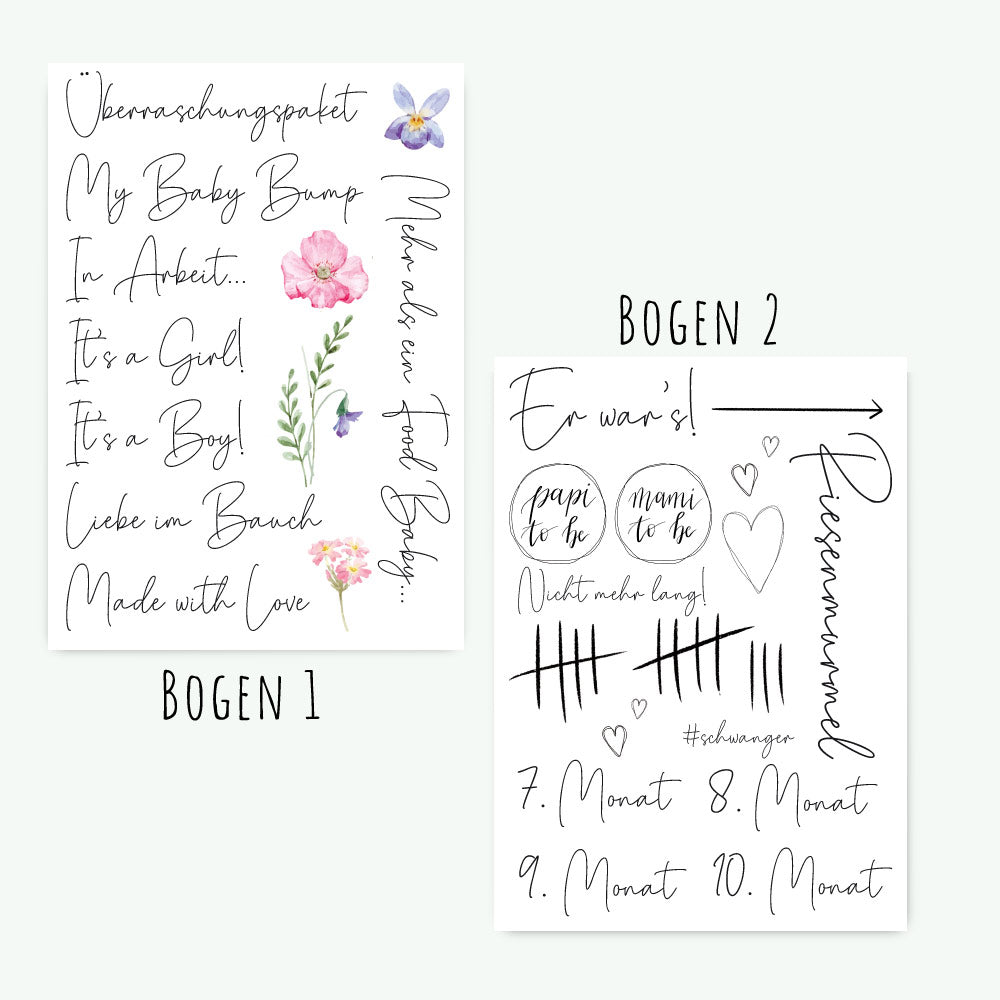 Überraschungspaket
My Baby Bump
In Arbeit...
It's a Girl!
It's a Boy!
Liebe im Bauch
Made with Love
Mehr als ein Food Baby...
BOGEN 1
BOGEN 2
Er war's!
Riesenmurmel
papi
to be
mami
to be
Nicht mehr lang!
#schwanger
7. Monat
8. Monat
9. Monat
10. Monat